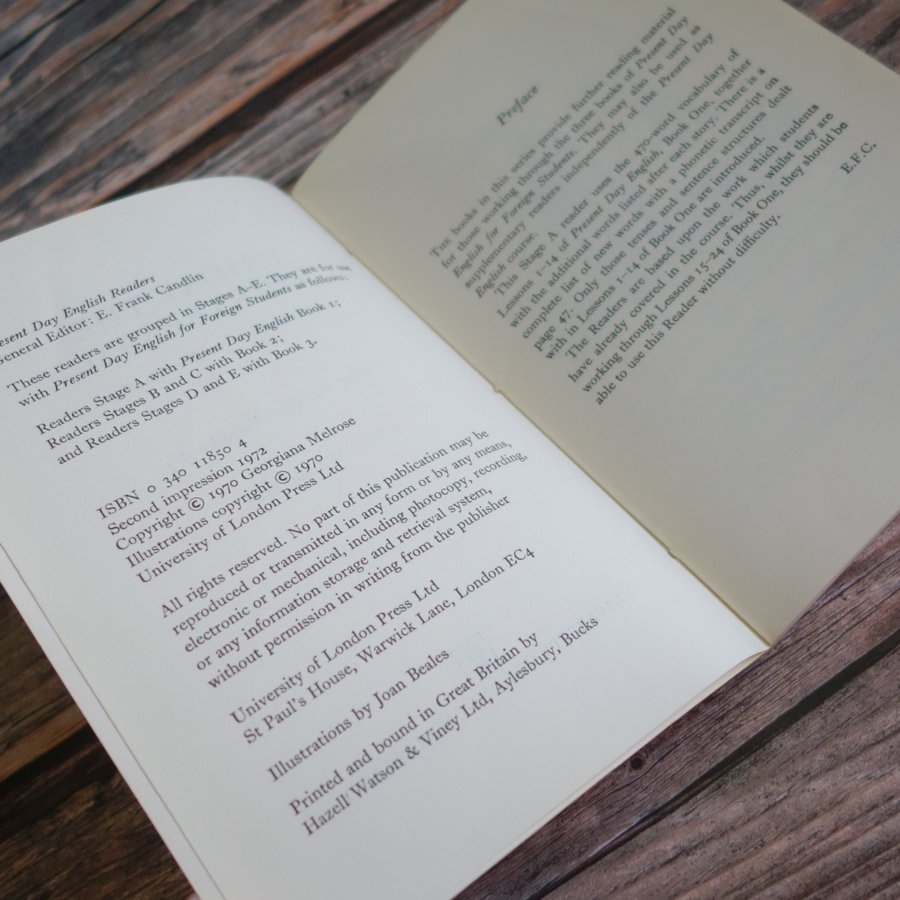 Present Day English Readers
General Editor: E. Frank Candlin
These readers are grouped in Stages A–E. They are for use
with Present Day English for Foreign Students as follows:
Readers Stage A with Present Day English Book 1;
Readers Stages B and C with Book 2;
and Readers Stages D and E with Book 3.
ISBN 0 340 11850 4
Second impression 1972
Copyright © 1970 Georgiana Melrose
Illustrations copyright © 1970
University of London Press Ltd
All rights reserved. No part of this publication may be
reproduced or transmitted in any form or by any means,
electronic or mechanical, including photocopy, recording,
or any information storage and retrieval system,
without permission in writing from the publisher
University of London Press Ltd
St Paul's House, Warwick Lane, London EC4
Illustrations by Joan Beales
Printed and bound in Great Britain by
Hazell Watson & Viney Ltd, Aylesbury, Bucks
Preface
THE books in this series provide further reading material
for those working through the three books of Present Day
English for Foreign Students. They may also be used as
supplementary readers independently of the Present Day
English course.
This Stage A reader uses the 470-word vocabulary of
Lessons 1–14 of Present Day English, Book One, together
with the additional words listed after each story. There is a
complete list of new words with a phonetic transcript on
page 47. Only those tenses and sentence structures dealt
with in Lessons 1–14 of Book One are introduced.
The Readers are based upon the work which students
have already covered in the course. Thus, whilst they are
working through Lessons 15–24 of Book One, they should be
able to use this Reader without difficulty.
E.F.C.